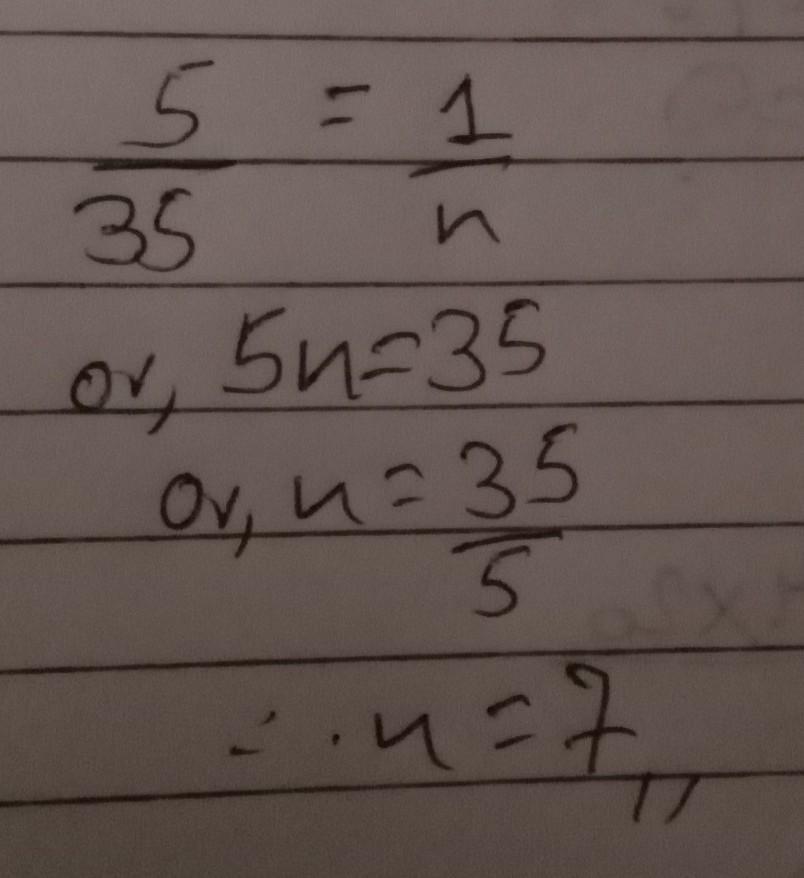 5/35 = 1/n
or, 5n=35
or, n = 35/5
∴ n = 7,,